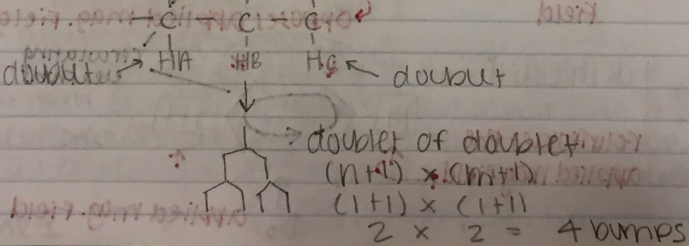 C - C - C
HA HB HC
doublet doublet
doublet of doublet
(n+1) × (m+1)
(1+1) × (1+1)
2 × 2 = 4 bumps